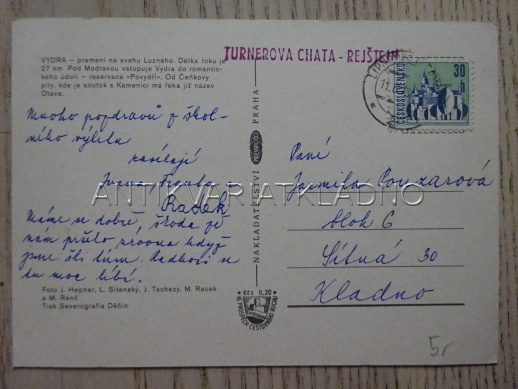 TURNEROVA CHATA - REJŠTEJN
VYDRA – pramení na svahu Luzného. Délka toku je
27 km. Pod Modravou vstupuje Vydra do romantic-
kého údolí – reservace «Povydří». Od Čeňkovy
pily, kde je soutok s Kamenicí má řeka již název
Otava.
ČESKOSLOVENSKO
30 h
Mnoho pozdravů z škol-
ního výletu
zasílají
Ivana
Radek
Máme se dobře, škoda že
nám pršelo zrovna když
jsme šli tam. Radkovi se
tu moc líbí.
NAKLADATELSTVÍ PRESSFOTO PRAHA
Paní
Jarmila
blok 6
Sítná 30
Kladno
ANTIKVARIATKLADNO
Foto J. Hepner, L. Sitenský, J. Tachezy, M. Racek
a M. Renč
Tisk Severografia Děčín
Kčs 0,20
VE PROSPĚCH CESTOVNÍHO RUCHU
5,-